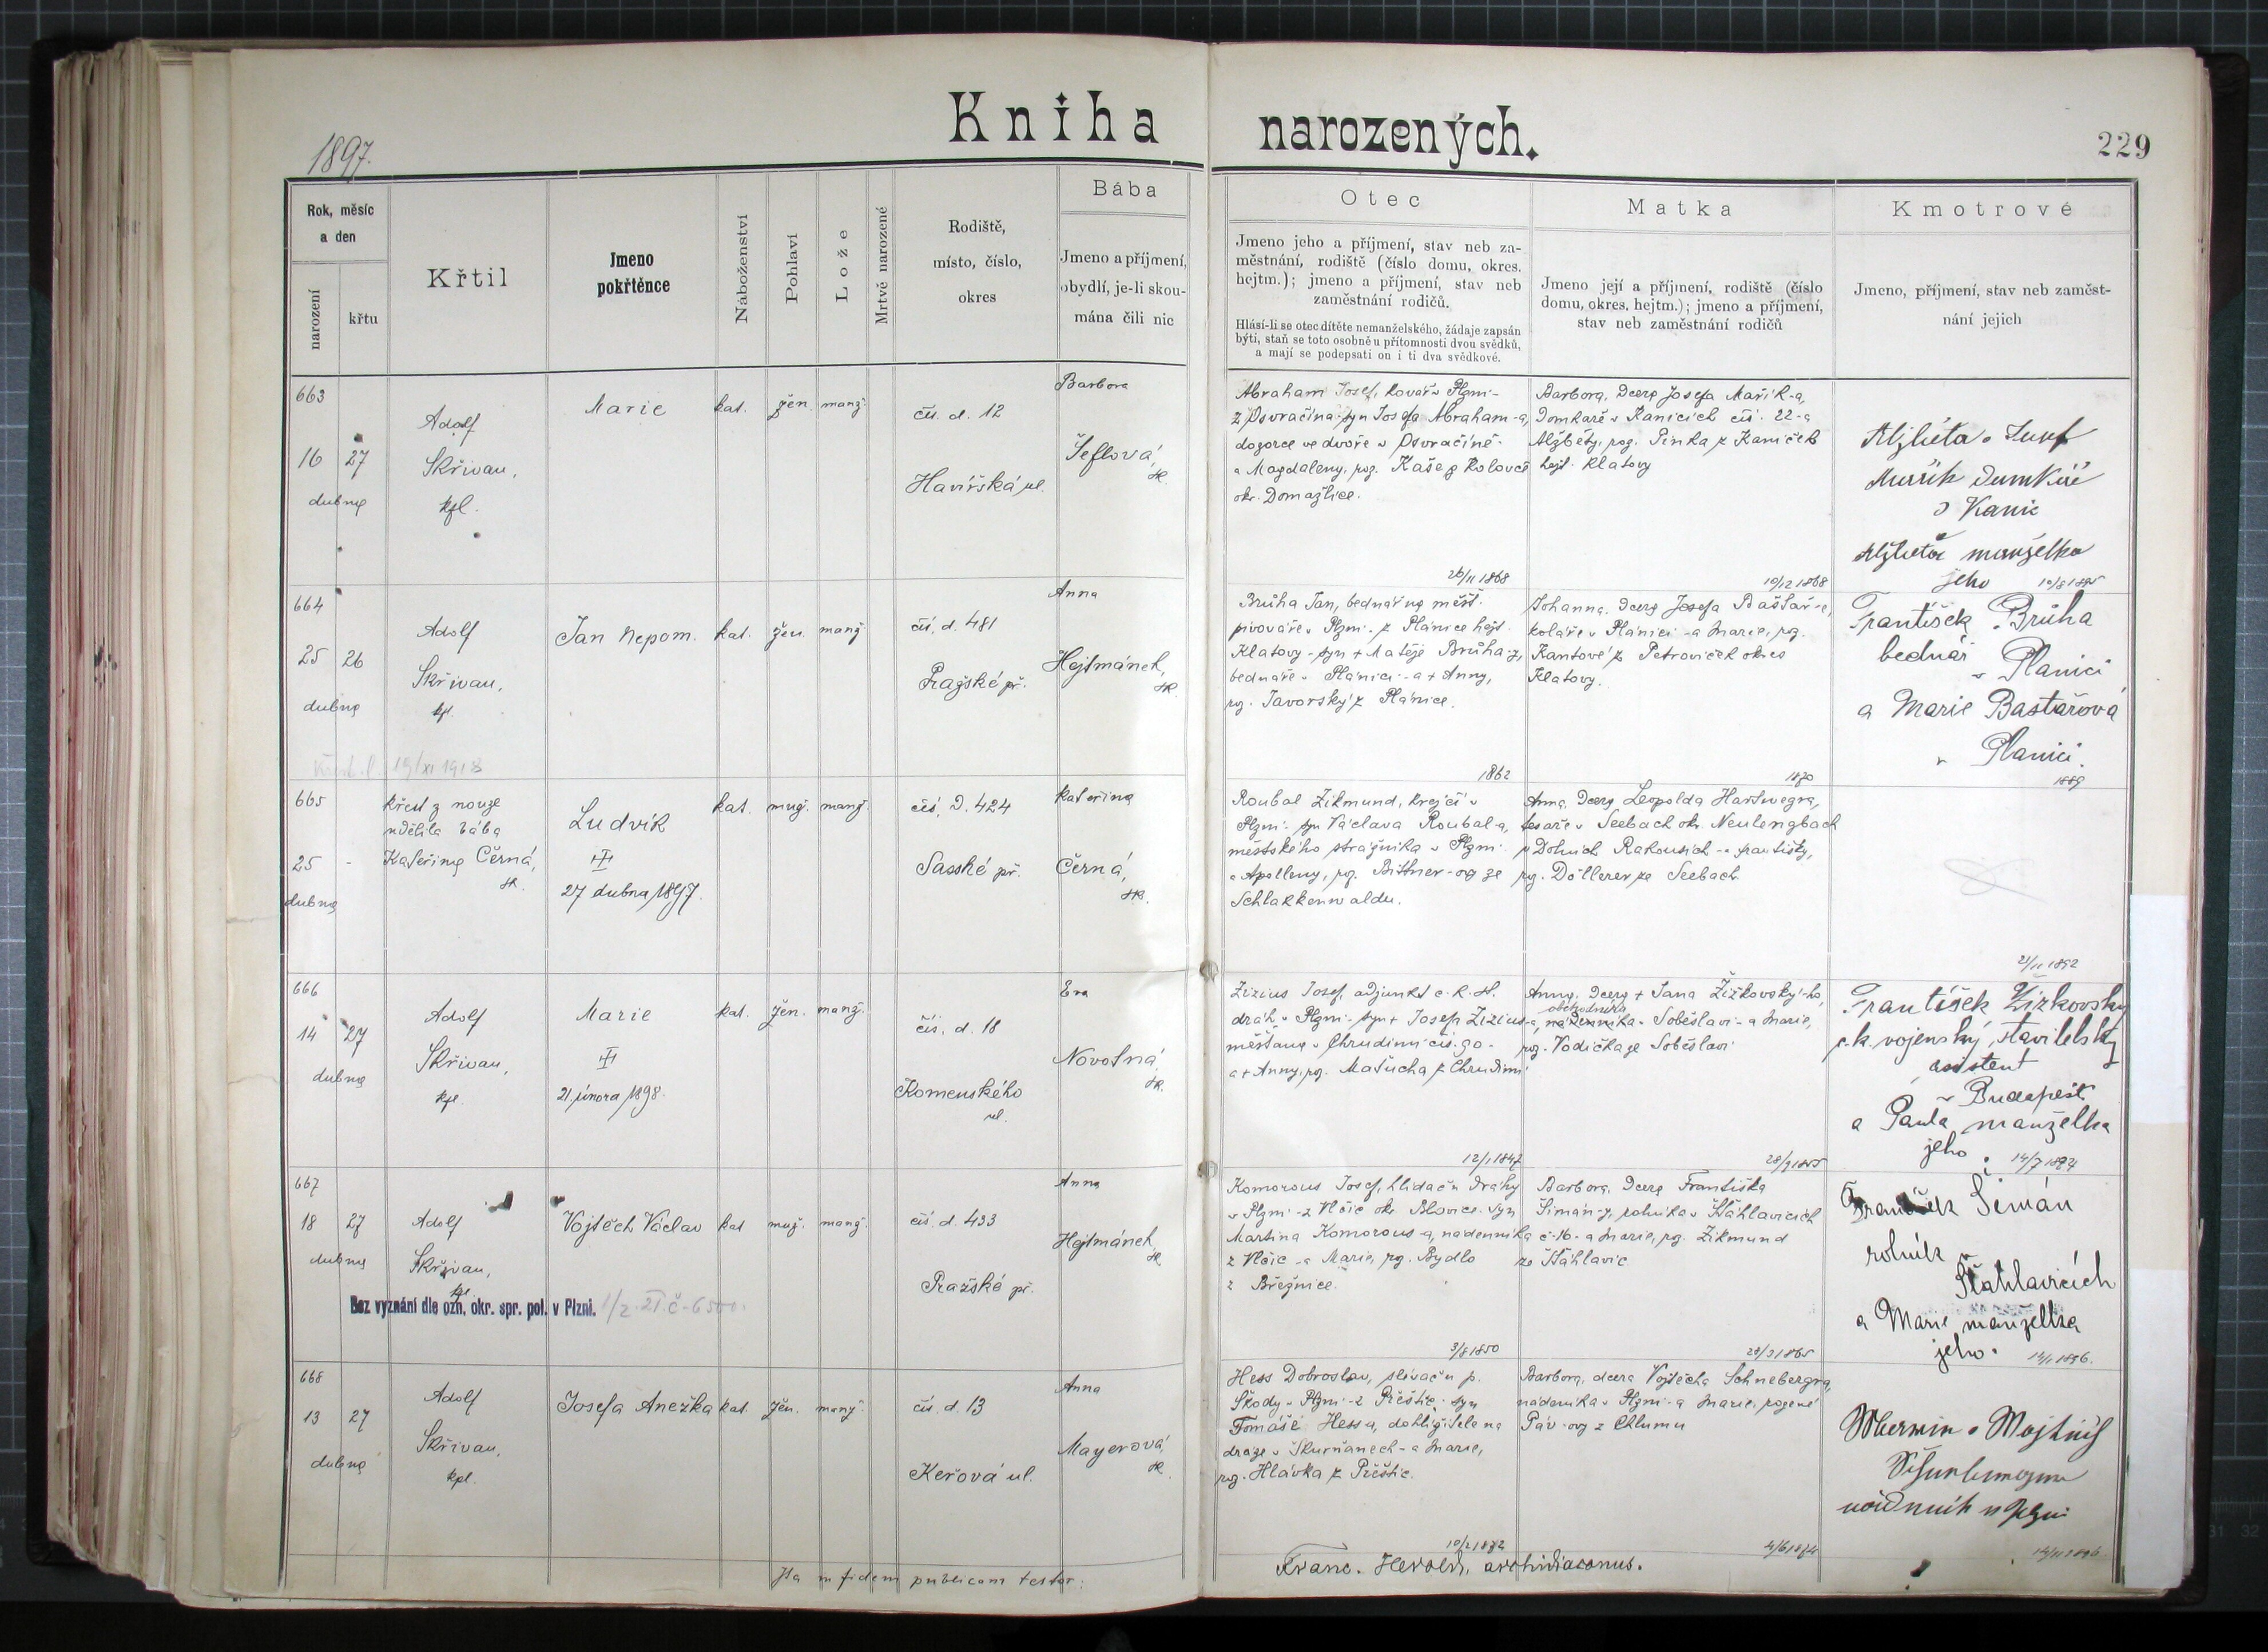 Kniha narozených.
1897.
229
Rok, měsíc
a den
narození
křtu
Křtil
Jmeno
pokřtěnce
Náboženství
Pohlaví
Lože
Mrtvě narozené
Rodiště,
místo, číslo,
okres
Bába
Jmeno a příjmení,
obydlí, je-li skou-
mána čili nic
Otec
Jmeno jeho a příjmení, stav neb za-
městnání, rodiště (číslo domu, okres.
hejtm.); jmeno a příjmení, stav neb
zaměstnání rodičů.
Hlásí-li se otec dítěte nemanželského, žádaje zapsán
býti, staň se toto osobně u přítomnosti dvou svědků,
a mají se podepsati on i ti dva svědkové.
Matka
Jmeno její a příjmení, rodiště (číslo
domu, okres. hejtm.); jmeno a příjmení,
stav neb zaměstnání rodičů
Kmotrové
Jmeno, příjmení, stav neb zaměst-
nání jejich
663
16 27
dubna
Adolf
Skřivan,
kpl.
Marie
kat. žen. manž.
čís. d. 12
Havířská ul.
Barbora
Šeflová,
zk.
Abraham Josef, kovář v Plzni-
z Osvračína-syn Josefa Abraham-a,
dozorce ve dvoře v Osvračíně-
a Magdaleny, roz. Kaše z Koloveč
okr. Domažlice.
26/11 1868
Barbora, dcera Josefa Mařík-a,
domkaře v Kanicích čís. 22-a
Alžběty, roz. Pinka z Kaniček
hejt. Klatovy
10/12 1868
Alžběta a Josef
Mařík domkář
z Kanic
Alžběta manželka
jeho 10/8 1895
664
25 26
dubna
Adolf
Skřivan,
kpl.
19/XI 1918
Jan Nepom.
kat. žen. manž.
čís. d. 481
Pražské př.
Anna
Hejtmánek,
zk.
Brůha Jan, bednář na měšť.
pivováře v Plzni- z Plánice hejt.
Klatovy-syn + Matěje Brůha-y,
bednáře v Plánici-a + Anny,
roz. Javorský z Plánice.
1862
Johanna, dcera Josefa Baštař-e,
koláře v Plánici-a Marie, roz.
Kantové z Petroviček okres
Klatovy.
1870
František Brůha
bednář
v Planici
a Marie Bastařová
v Planici.
1889
665
25 -
dubna
křest z nouze
udělila bába
Kateřina Černá,
zk.
Ludvík
27 dubna 1897.
kat. muž. manž.
čís. d. 424
Saské př.
Kateřina
Černá,
zk.
Roubal Zikmund, krejčí v
Plzni- syn Václava Roubal-a,
městského strážníka v Plzni-
a Apolleny, roz. Bittner-og ze
Schlakkenwaldu.
Anna, dcera Leopolda Hartwegra,
tesaře v Seebach okr. Neulengbach
v Dolních Rakousích-a Františky,
roz. Döllerer ze Seebach
21/11 1892
666
14 27
dubna
Adolf
Skřivan,
kpl.
Marie
21. února 1898.
kat. žen. manž.
čís. d. 18
Komenského
ul.
Eva
Novotná,
zk.
Zizius Josef, adjunkt c. k. st.
dráh v Plzni- syn + Josefa Zizius-a,
měšťana v Chrudimi čís. 90-
a + Anny, roz. Maťucha z Chrudimi
12/1 1847
Anna, dcera + Jana Žižkovský-ho,
obchodníka
nádenníka v Soběslavi-a Marie,
roz. Vodička ze Soběslavi
28/9 1855
František Žižkovský
c.k. vojenský stavitelský
asistent
v Budapešt
a Paula manželka
jeho. 14/7 1874
667
18 27
dubna
Adolf
Skřivan,
kpl.
Bez vyznání dle ozn. okr. spr. pol. v Plzni.
Vojtěch Václav
kat muž. manž.
čís. d. 433
Pražské př.
Anna
Hejtmánek,
zk
Komorous Josef, hlídač u dráhy
v Plzni-z Vlčic okr. Blovice-syn
Martina Komorous-a, nádenníka
z Vlčic-a Marie, roz. Bydlo
z Březnice.
3/8 1850
Barbora, dcera Františka
Šimán-y, rolníka v Šťáhlavicích
č-16-a Marie, roz. Zikmund
ze Šťáhlavic
24/3 1865
František Šimán
rolník v
Šťahlavicích
a Marie manželka
jeho. 14/1 1896.
668
13 27
dubna
Adolf
Skřivan,
kpl.
Josefa Anežka
kat. žen. manž.
čís. d. 13
Keřová ul.
Anna
Mayerová,
zk.
Hess Dobroslav, slévač u p.
Škody v Plzni-z Přeštic- syn
Tomáše Hess-a, dohližitele na
dráze v Škurňanech-a Marie,
roz. Hlávka z Přeštic.
10/2 1872
Barbora, dcera Vojtěcha Schnebergra,
nádeníka v Plzni-a Marie, rozené
Páv-ovy z Chlumu
4/6 1874
14/11 1896.
Ita in fidem publicam testor:
Franc. Herold, archidiaconus.